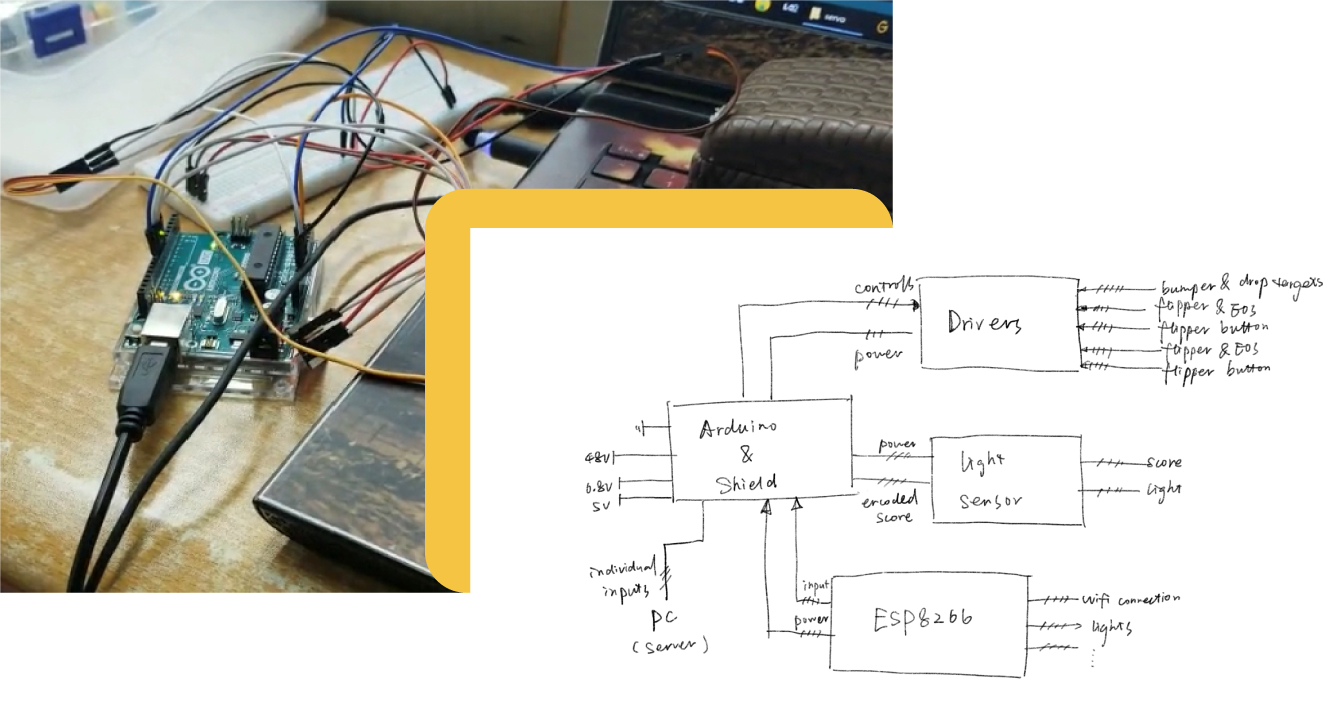 servo
G
ARDUINO
controls
power
Drivers
bumper & drop targets
flipper & EOS
flipper button
flipper & EOS
flipper button
Arduino
&
Shield
48V
6.8V
5V
power
encoded
score
light
sensor
score
light
individual
inputs
PC
(server)
input
power
ESP8266
wifi connection
lights